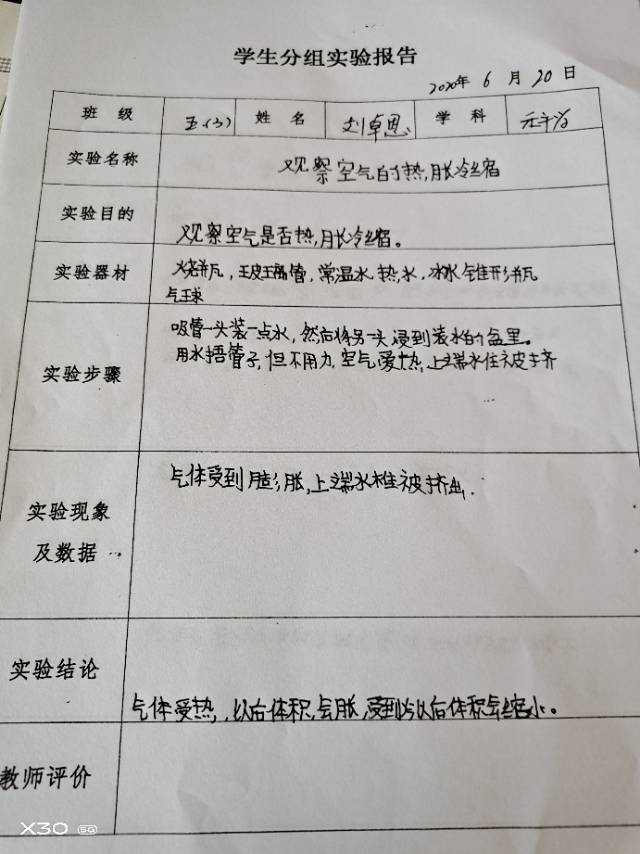 学生分组实验报告
2020年 6 月 20 日
班 级 五(3) 姓 名 刘卓恩 学 科
实验名称 观察空气的热胀冷缩
实验目的 观察空气是否热胀冷缩。
实验器材 烧瓶,玻璃管,常温水 热水,冰水 锥形瓶
气球
实验步骤 吸管一头装一点水,然后将另一头浸到装水的盆里。
用水捂管子,但不用力,空气受热,上端水住被挤
实验现象
及数据
气体受到膨胀,上端水柱被挤出.
实验结论
气体受热,以后体积会胀,受到冷以后体积会缩小。
教师评价
X30 5G